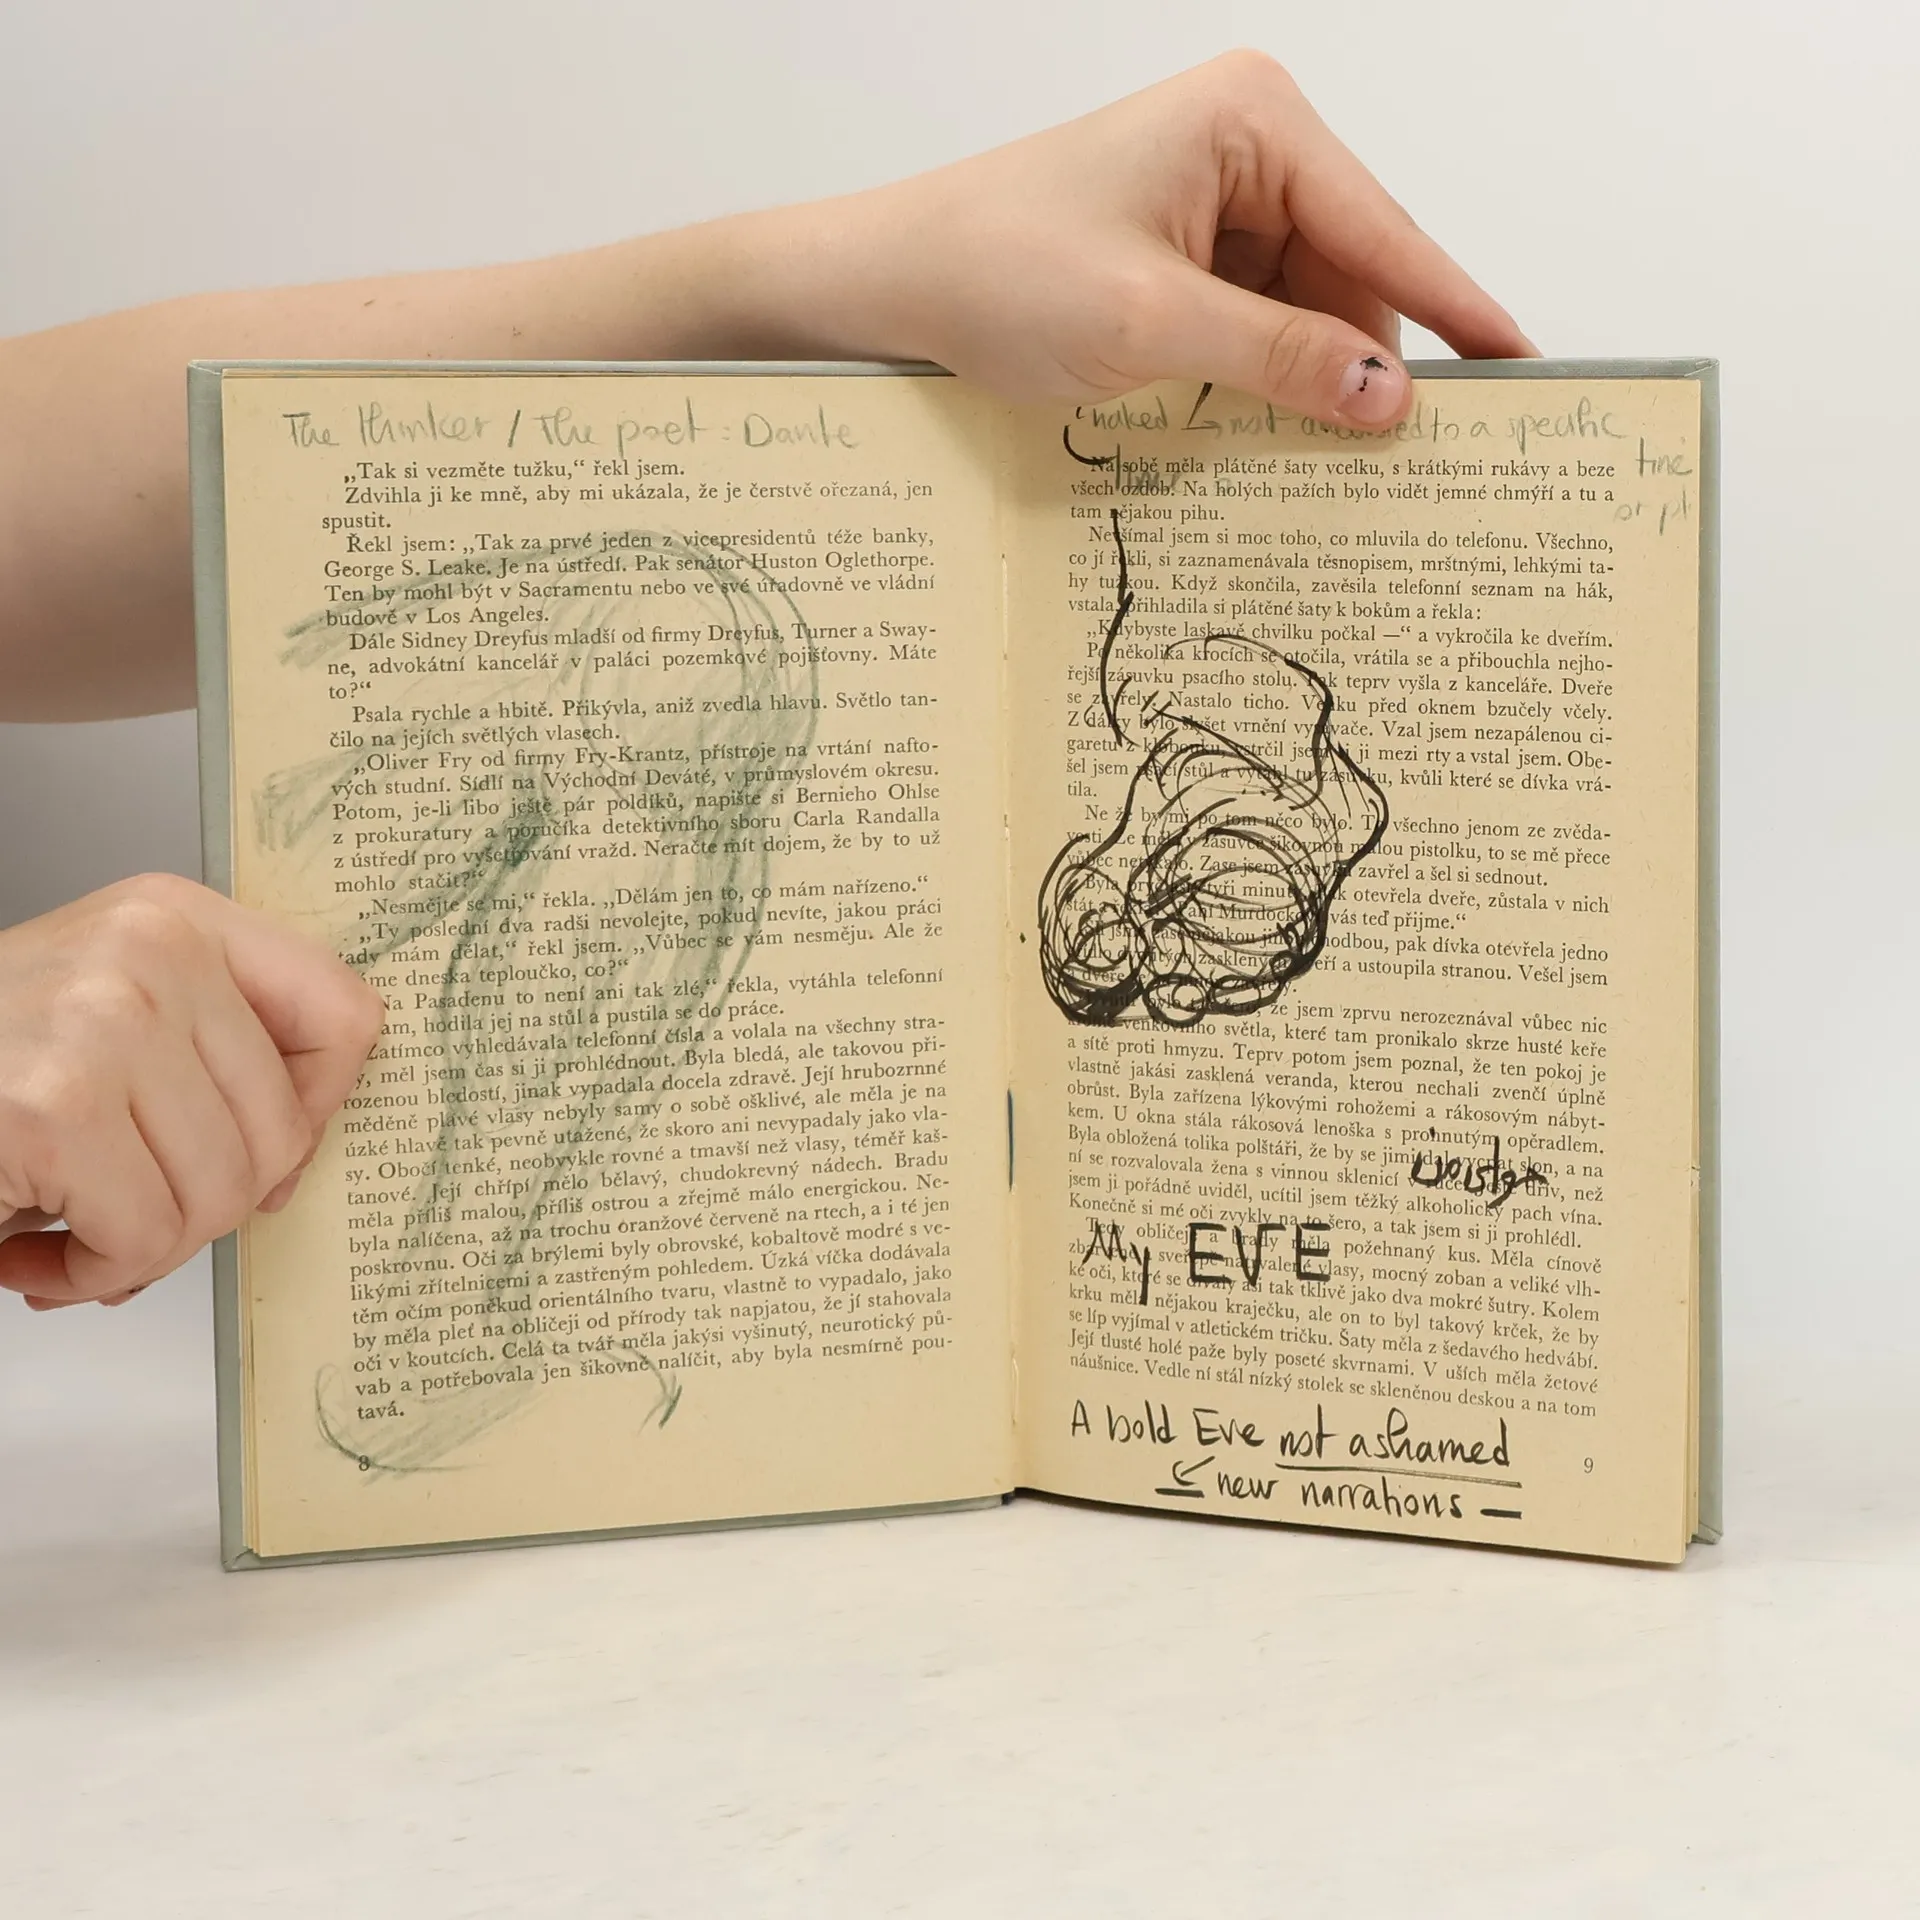 The thinker / The poet : Dante
„Tak si vezměte tužku,“ řekl jsem.
Zdvihla ji ke mně, aby mi ukázala, že je čerstvě ořezaná, jen
spustit.
Řekl jsem: „Tak za prvé jeden z vicepresidentů téže banky,
George S. Leake. Je na ústředí. Pak senátor Huston Oglethorpe.
Ten by mohl být v Sacramentu nebo ve své úřadovně ve vládní
budově v Los Angeles.
Dále Sidney Dreyfus mladší od firmy Dreyfus, Turner a Sway-
ne, advokátní kancelář v paláci pozemkové pojišťovny. Máte
to?“
Psala rychle a hbitě. Přikývla, aniž zvedla hlavu. Světlo tan-
čilo na jejích světlých vlasech.
„Oliver Fry od firmy Fry-Krantz, přístroje na vrtání nafto-
vých studní. Sídlí na Východní Deváté, v průmyslovém okresu.
Potom, je-li libo ještě pár poldíků, napište si Bernieho Ohlse
z prokuratury a poručíka detektivního sboru Carla Randalla
z ústředí pro vyšetřování vražd. Neračte mít dojem, že by to už
mohlo stačit?“
„Nesmějte se mi,“ řekla. „Dělám jen to, co mám nařízeno.“
„Ty poslední dva radši nevolejte, pokud nevíte, jakou práci
tady mám dělat,“ řekl jsem. „Vůbec se vám nesměju. Ale že
máme dneska teploučko, co?“
Na Pasadenu to není ani tak zlé,“ řekla, vytáhla telefonní
hodila jej na stůl a pustila se do práce.
Zatímco vyhledávala telefonní čísla a volala na všechny stra-
y, měl jsem čas si ji prohlédnout. Byla bledá, ale takovou při-
rozenou bledostí, jinak vypadala docela zdravě. Její hrubozrnné
měděně plavé vlasy nebyly samy o sobě ošklivé, ale měla je na
úzké hlavě tak pevně utažené, že skoro ani nevypadaly jako vla-
sy. Obočí tenké, neobvykle rovné a tmavší než vlasy, téměř kaš-
tanové. Její chřípí mělo bělavý, chudokrevný nádech. Bradu
měla příliš malou, příliš ostrou a zřejmě málo energickou. Ne-
byla nalíčena, až na trochu oranžové červeně na rtech, a i té jen
poskrovnu. Oči za brýlemi byly obrovské, kobaltově modré s ve-
likými zřítelnicemi a zastřeným pohledem. Úzká víčka dodávala
těm očím poněkud orientálního tvaru, vlastně to vypadalo, jako
by měla pleť na obličeji od přírody tak napjatou, že jí stahovala
oči v koutcích. Celá ta tvář měla jakýsi vyšinutý, neurotický pů-
vab a potřebovala jen šikovně nalíčit, aby byla nesmírně pou-
tavá.
8
naked not to a specific
time
Na sobě měla plátěné šaty vcelku, s krátkými rukávy a beze
všech ozdob. Na holých pažích bylo vidět jemné chmýří a tu a
tam nějakou pihu.
Nevšímal jsem si moc toho, co mluvila do telefonu. Všechno,
co jí řekli, si zaznamenávala těsnopisem, mrštnými, lehkými ta-
hy tužkou. Když skončila, zavěsila telefonní seznam na hák,
vstala, přihladila si plátěné šaty k bokům a řekla:
„Kdybyste laskavě chvilku počkal —“ a vykročila ke dveřím.
Po několika krocích se otočila, vrátila se a přibouchla nejho-
řejší zásuvku psacího stolu. Pak teprv vyšla z kanceláře. Dveře
se zavřely. Nastalo ticho. Venku před oknem bzučely včely.
Z dálky bylo slyšet vrnění vysavače. Vzal jsem nezapálenou ci-
garetu z klobouku, vstrčil jsem si ji mezi rty a vstal jsem. Obe-
šel jsem psací stůl a vytáhl tu zásuvku, kvůli které se dívka vrá-
tila.
Ne že by mi po tom něco bylo. To všechno jenom ze zvěda-
vosti. Že měla v zásuvce šikovnou malou pistolku, to se mě přece
vůbec netýkalo. Zase jsem zásuvku zavřel a šel si sednout.
Byla pryč asi čtyři minuty. Pak otevřela dveře, zůstala v nich
stát a řekla: „Paní Murdocková vás teď přijme.“
Šli jsme zase nějakou jinou chodbou, pak dívka otevřela jedno
křídlo dvojitých zasklených dveří a ustoupila stranou. Vešel jsem
a dveře se za mnou zavřely.
Uvnitř bylo tak šero, že jsem zprvu nerozeznával vůbec nic
kromě venkovního světla, které tam pronikalo skrze husté keře
a sítě proti hmyzu. Teprv potom jsem poznal, že ten pokoj je
vlastně jakási zasklená veranda, kterou nechali zvenčí úplně
obrůst. Byla zařízena lýkovými rohožemi a rákosovým nábyt-
kem. U okna stála rákosová lenoška s prohnutým opěradlem.
Byla obložená tolika polštáři, že by se jimi dal vycpat slon, a na
ní se rozvalovala žena s vinnou sklenicí v ruce. Ještě dřív, než
jsem ji pořádně uviděl, ucítil jsem těžký alkoholický pach vína.
Konečně si mé oči zvykly na to šero, a tak jsem si ji prohlédl.
Tedy obličeje a brady měla požehnaný kus. Měla cínově
zbarvené a sveřepě natrvalené vlasy, mocný zoban a veliké vlh-
ké oči, které se dívaly asi tak tklivě jako dva mokré šutry. Kolem
krku měla nějakou kraječku, ale on to byl takový krček, že by
se líp vyjímal v atletickém tričku. Šaty měla z šedavého hedvábí.
Její tlusté holé paže byly poseté skvrnami. V uších měla žetové
náušnice. Vedle ní stál nízký stolek se skleněnou deskou a na tom
My EVE
A bold Eve not ashamed
new narrations —
9